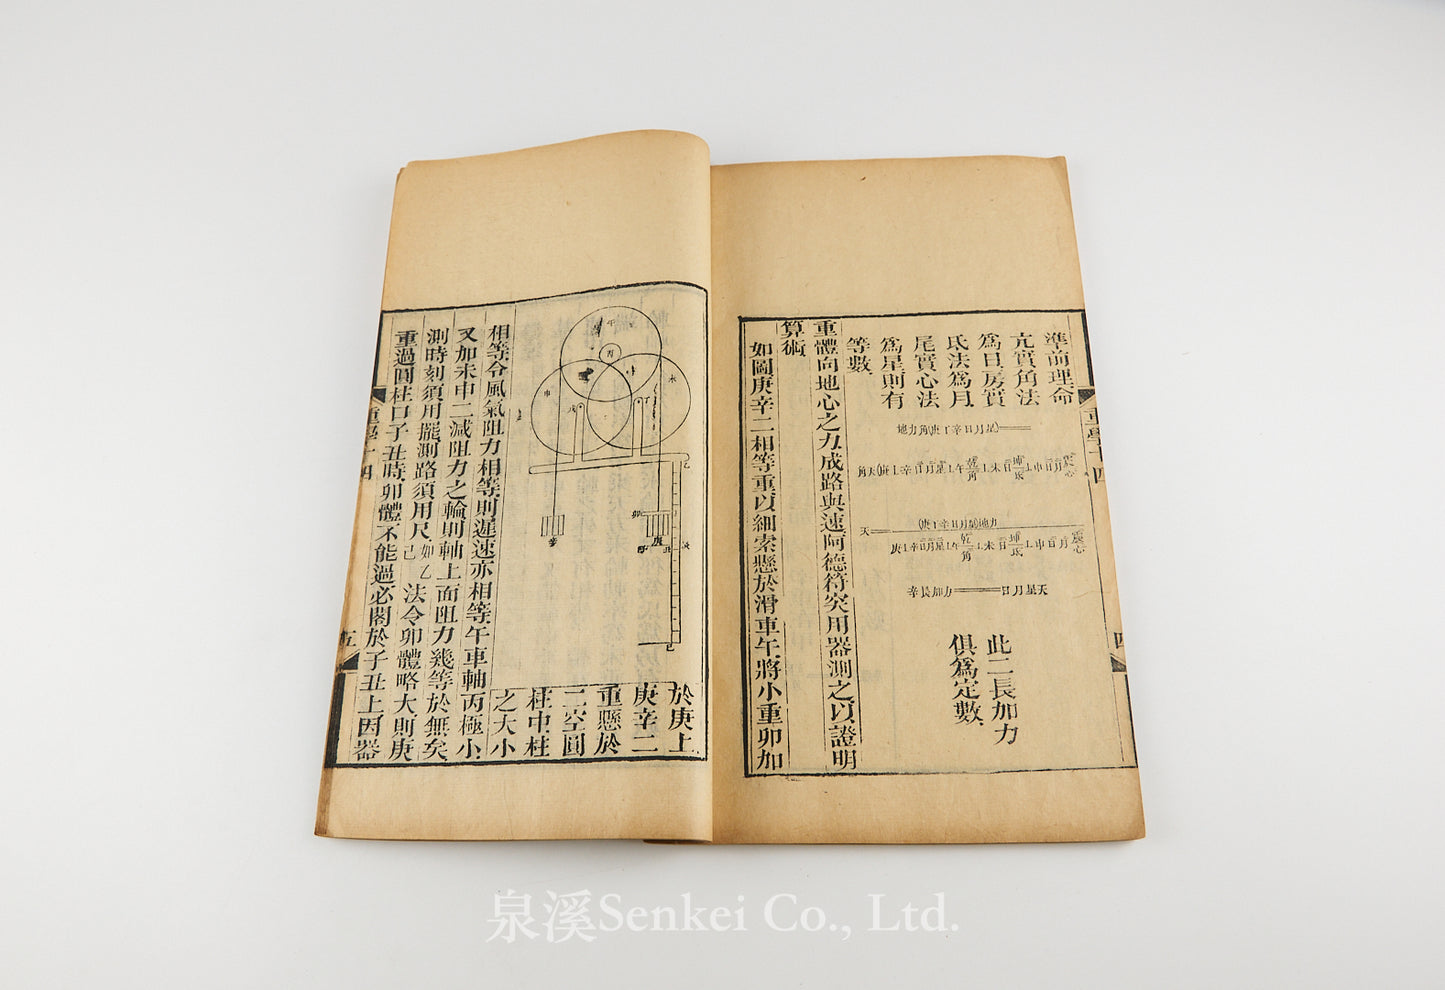 準前理命
亢實角法
為日房質
氐法為月
尾實心法
為星則有
等數
此二長加力
俱為定數
重體向地心之力成路與速阿德符突用器測之以證明
算術
如圖庚辛二相等重以細索懸於滑車午將小重卯加
於庚上
庚辛二
重懸於
二空圓
柱中柱
之大小
相等令風氣阻力相等則遲速亦相等午車軸丙極小
又加未申二減阻力之輪則軸上面阻力幾等於無矣
測時刻須用擺測路須用尺如己乙法令卯體略大則庚
重過圓柱口子丑時卯體不能過必閣於子丑上因器
重學十四
五
四
泉溪Senkei Co., Ltd.